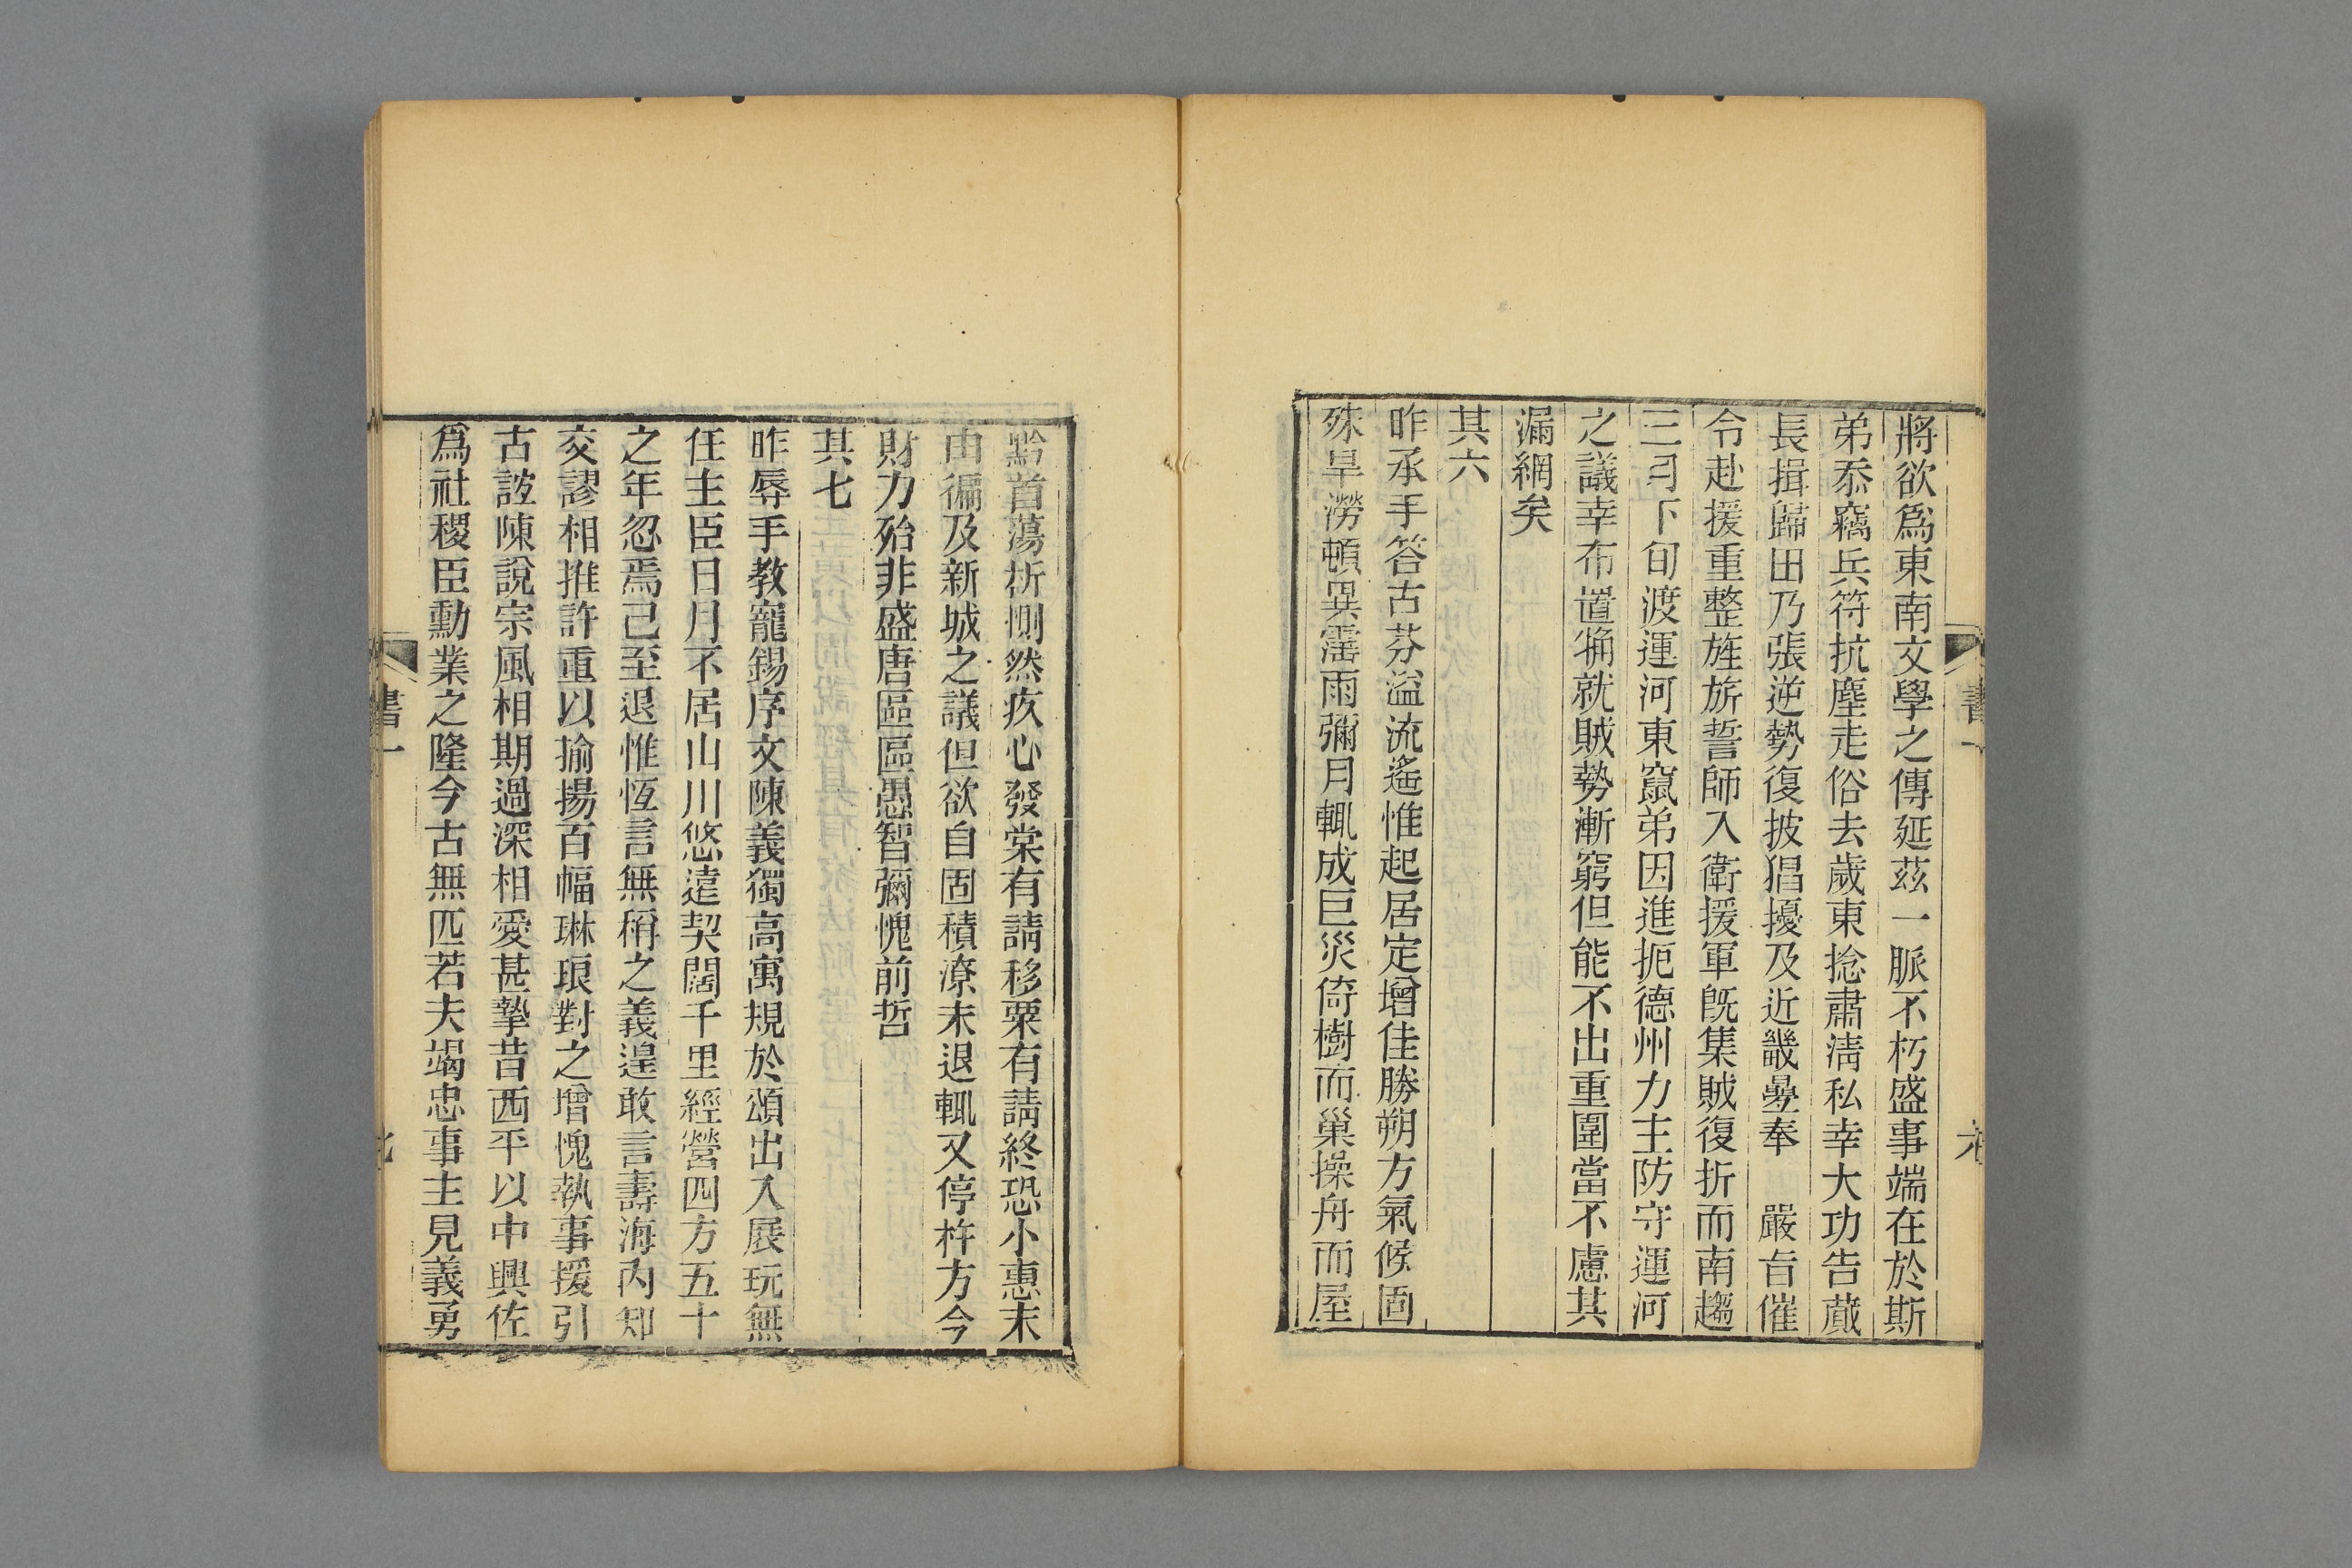 將欲爲東南文學之傳延茲一脈不朽盛事端在於斯
弟忝竊兵符抗塵走俗去歲東捻肅清私幸大功告蕆
長揖歸田乃張逆勢復披猖擾及近畿疊奉 嚴旨催
令赴援重整旌旂誓師入衛援軍旣集賊復折而南趨
三月下旬渡運河東竄弟因進扼德州力主防守運河
之議幸布置稍就賊勢漸窮但能不出重圍當不慮其
漏網矣
其六
昨承手答古芬溢流遙惟起居定增佳勝朔方氣候固
殊旱澇頓異霪雨彌月輒成巨災倚樹而巢操舟而屋
書一
黔首蕩析惻然疚心發棠有請移粟有請終恐小惠未
由徧及新城之議但欲自固積潦未退輒又停杵方今
財力殆非盛唐區區愚智彌愧前哲
其七
昨辱手教寵錫序文陳義獨高寓規於頌出入展玩無
任主臣日月不居山川悠遠契闊千里經營四方五十
之年忽焉已至退惟恆言無稱之義遑敢言壽海內知
交謬相推許重以揄揚百幅琳琅對之增愧執事援引
古誼陳說宗風相期過深相愛甚摯昔西平以中興佐
爲社稷臣勳業之隆今古無匹若夫竭忠事主見義勇
書一